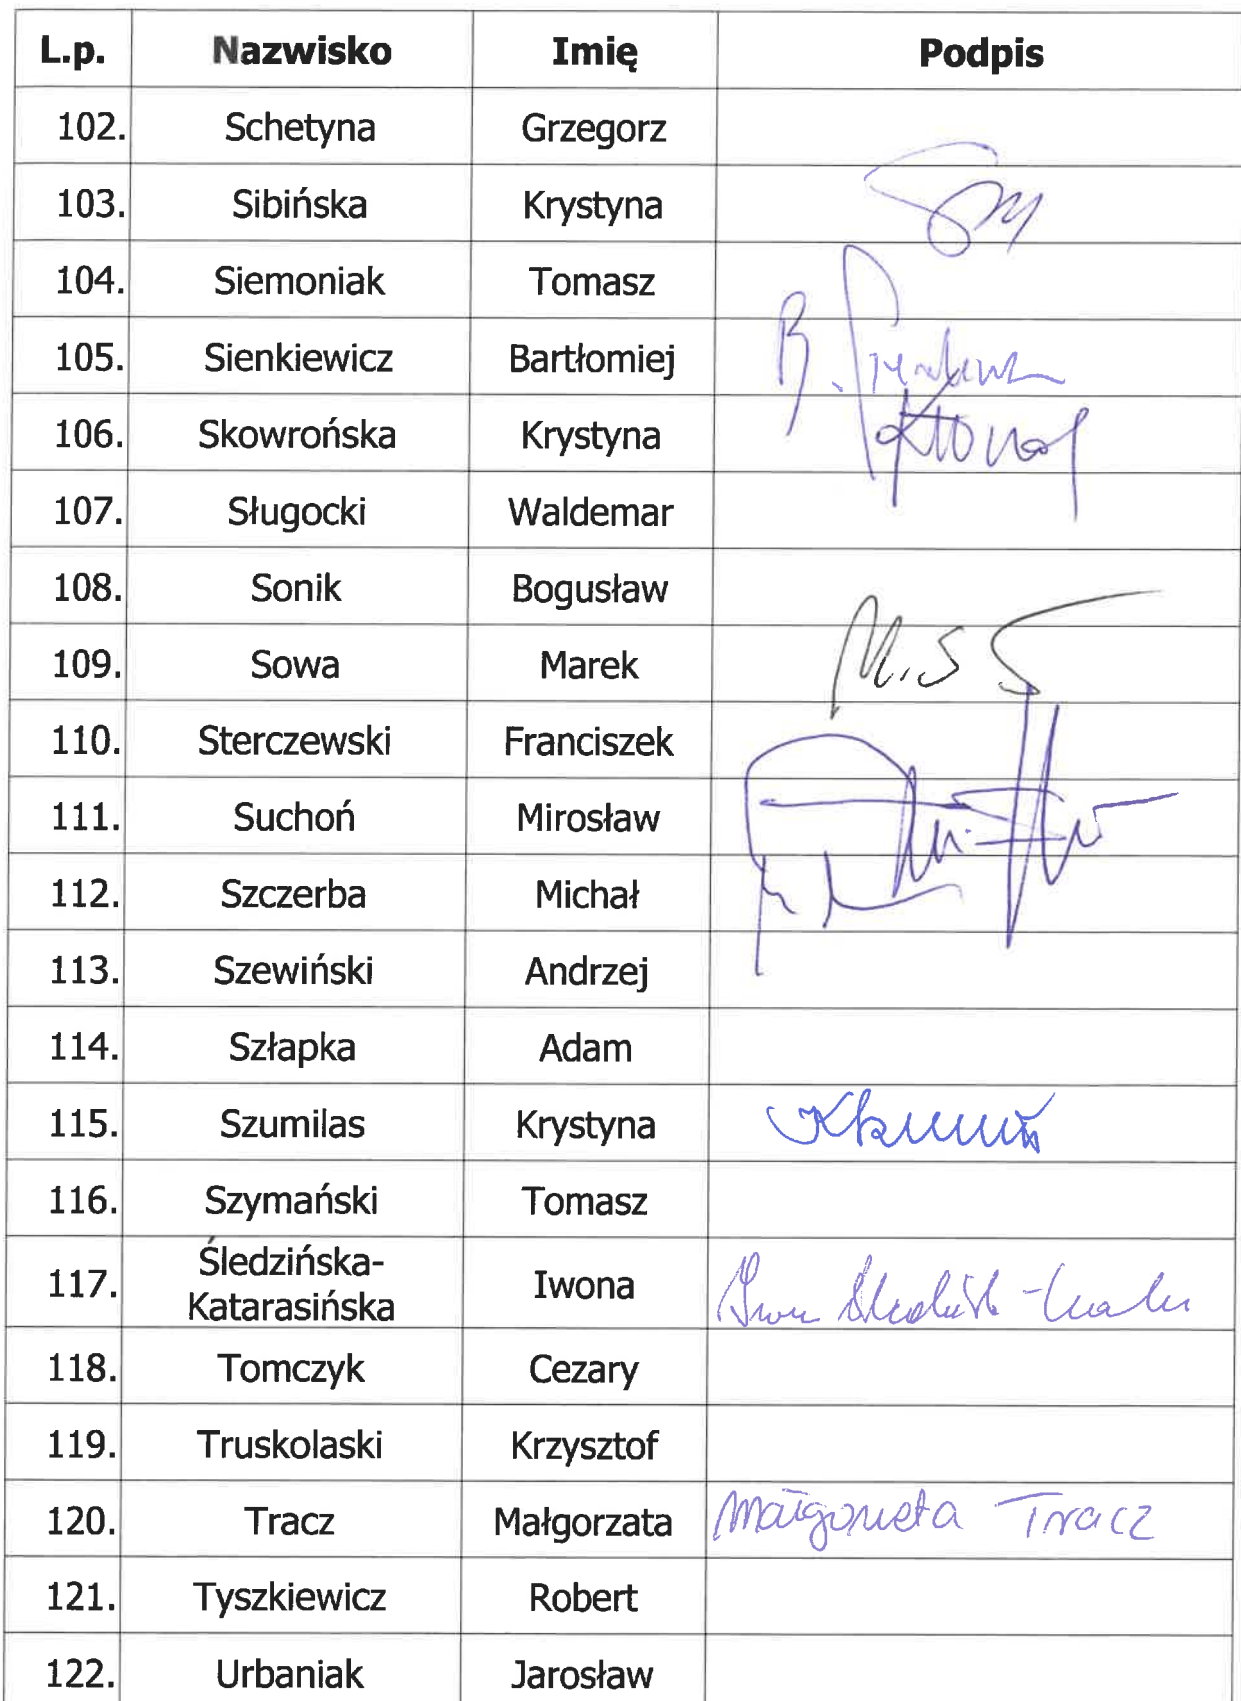 L.p. Nazwisko Imię Podpis
102. Schetyna Grzegorz
103. Sibińska Krystyna
104. Siemoniak Tomasz
105. Sienkiewicz Bartłomiej B.
106. Skowrońska Krystyna
107. Sługocki Waldemar
108. Sonik Bogusław
109. Sowa Marek M. S
110. Sterczewski Franciszek
111. Suchoń Mirosław
112. Szczerba Michał
113. Szewiński Andrzej
114. Szłapka Adam
115. Szumilas Krystyna
116. Szymański Tomasz
117. Śledzińska-
Katarasińska Iwona
118. Tomczyk Cezary
119. Truskolaski Krzysztof
120. Tracz Małgorzata Małgorzata Tracz
121. Tyszkiewicz Robert
122. Urbaniak Jarosław